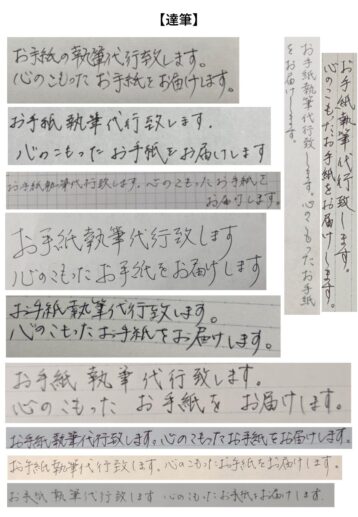 【達筆】
お手紙の執筆代行致します。
心のこもったお手紙をお届けします。
お手紙執筆代行致します.
心のこもったお手紙をお届けします
お手紙執筆代行致します. 心のこもったお手紙を
お届けします。
お手紙執筆代行致します
心のこもったお手紙をお届けします
お手紙執筆代行致します。
心のこもったお手紙をお届けします。
お手紙 執筆 代行致します。
心の こもった お手紙を お届けします。
お手紙執筆代行致します。心のこもったお手紙をお届けします。
お手紙執筆代行致します。心のこもったお手紙をお届けします。
お手紙執筆代行致します 心のこもったお手紙をお届けします.
お手紙執筆代行致します。
心のこもったお手紙をお届けします。
お手紙執筆代行致します。心のこもったお手紙
をお届けします。